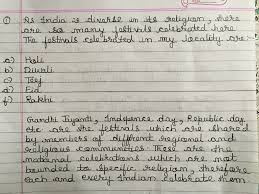 ① As India is diverse in its religion, there
are so many festivals celebrated here
The festivals celebrated in my locality are:-
a) Holi
b) Diwali
c) Teej
d) Eid
f) Rakhi
Gandhi Jayanti, Indepence day, Republic day
etc are the festivals which are shared
by members of different regional and
religious communities These are the
national celebrations which are not
bounded to specific religion, therefore
each and every Indian celebrate them